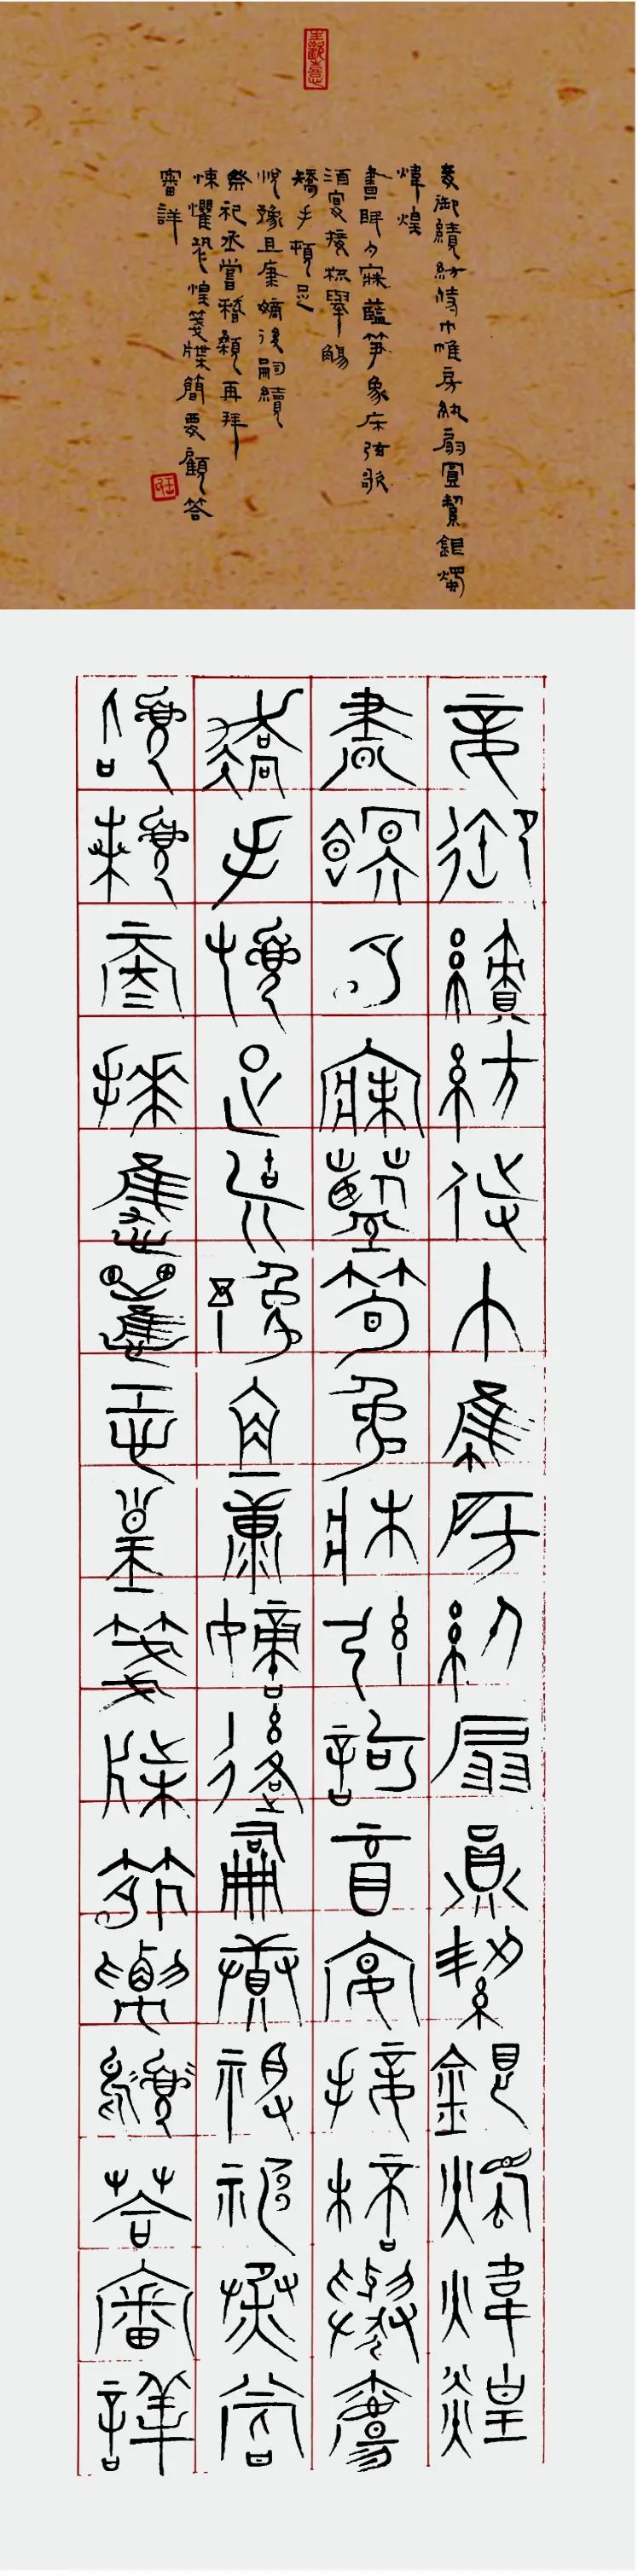 妾御績紡侍巾帷房紈扇圓絜銀燭
煒煌
晝眠夕寐藍笋象床弦歌
酒宴接杯舉觴
矯手頓足
悅豫且康嫡後嗣續
祭祀烝嘗稽顙再拜
悚懼恐惶箋牒簡要顧答
審詳
妾御績紡侍巾帷房紈扇圓絜銀燭煒煌
晝瞑夕寐藍筍象牀弦歌酒宴接杯舉觴
矯手頓足悅豫且康嫡後嗣續祭祀烝嘗
稽顙再拜悚懼恐惶箋牒簡要顧答審詳